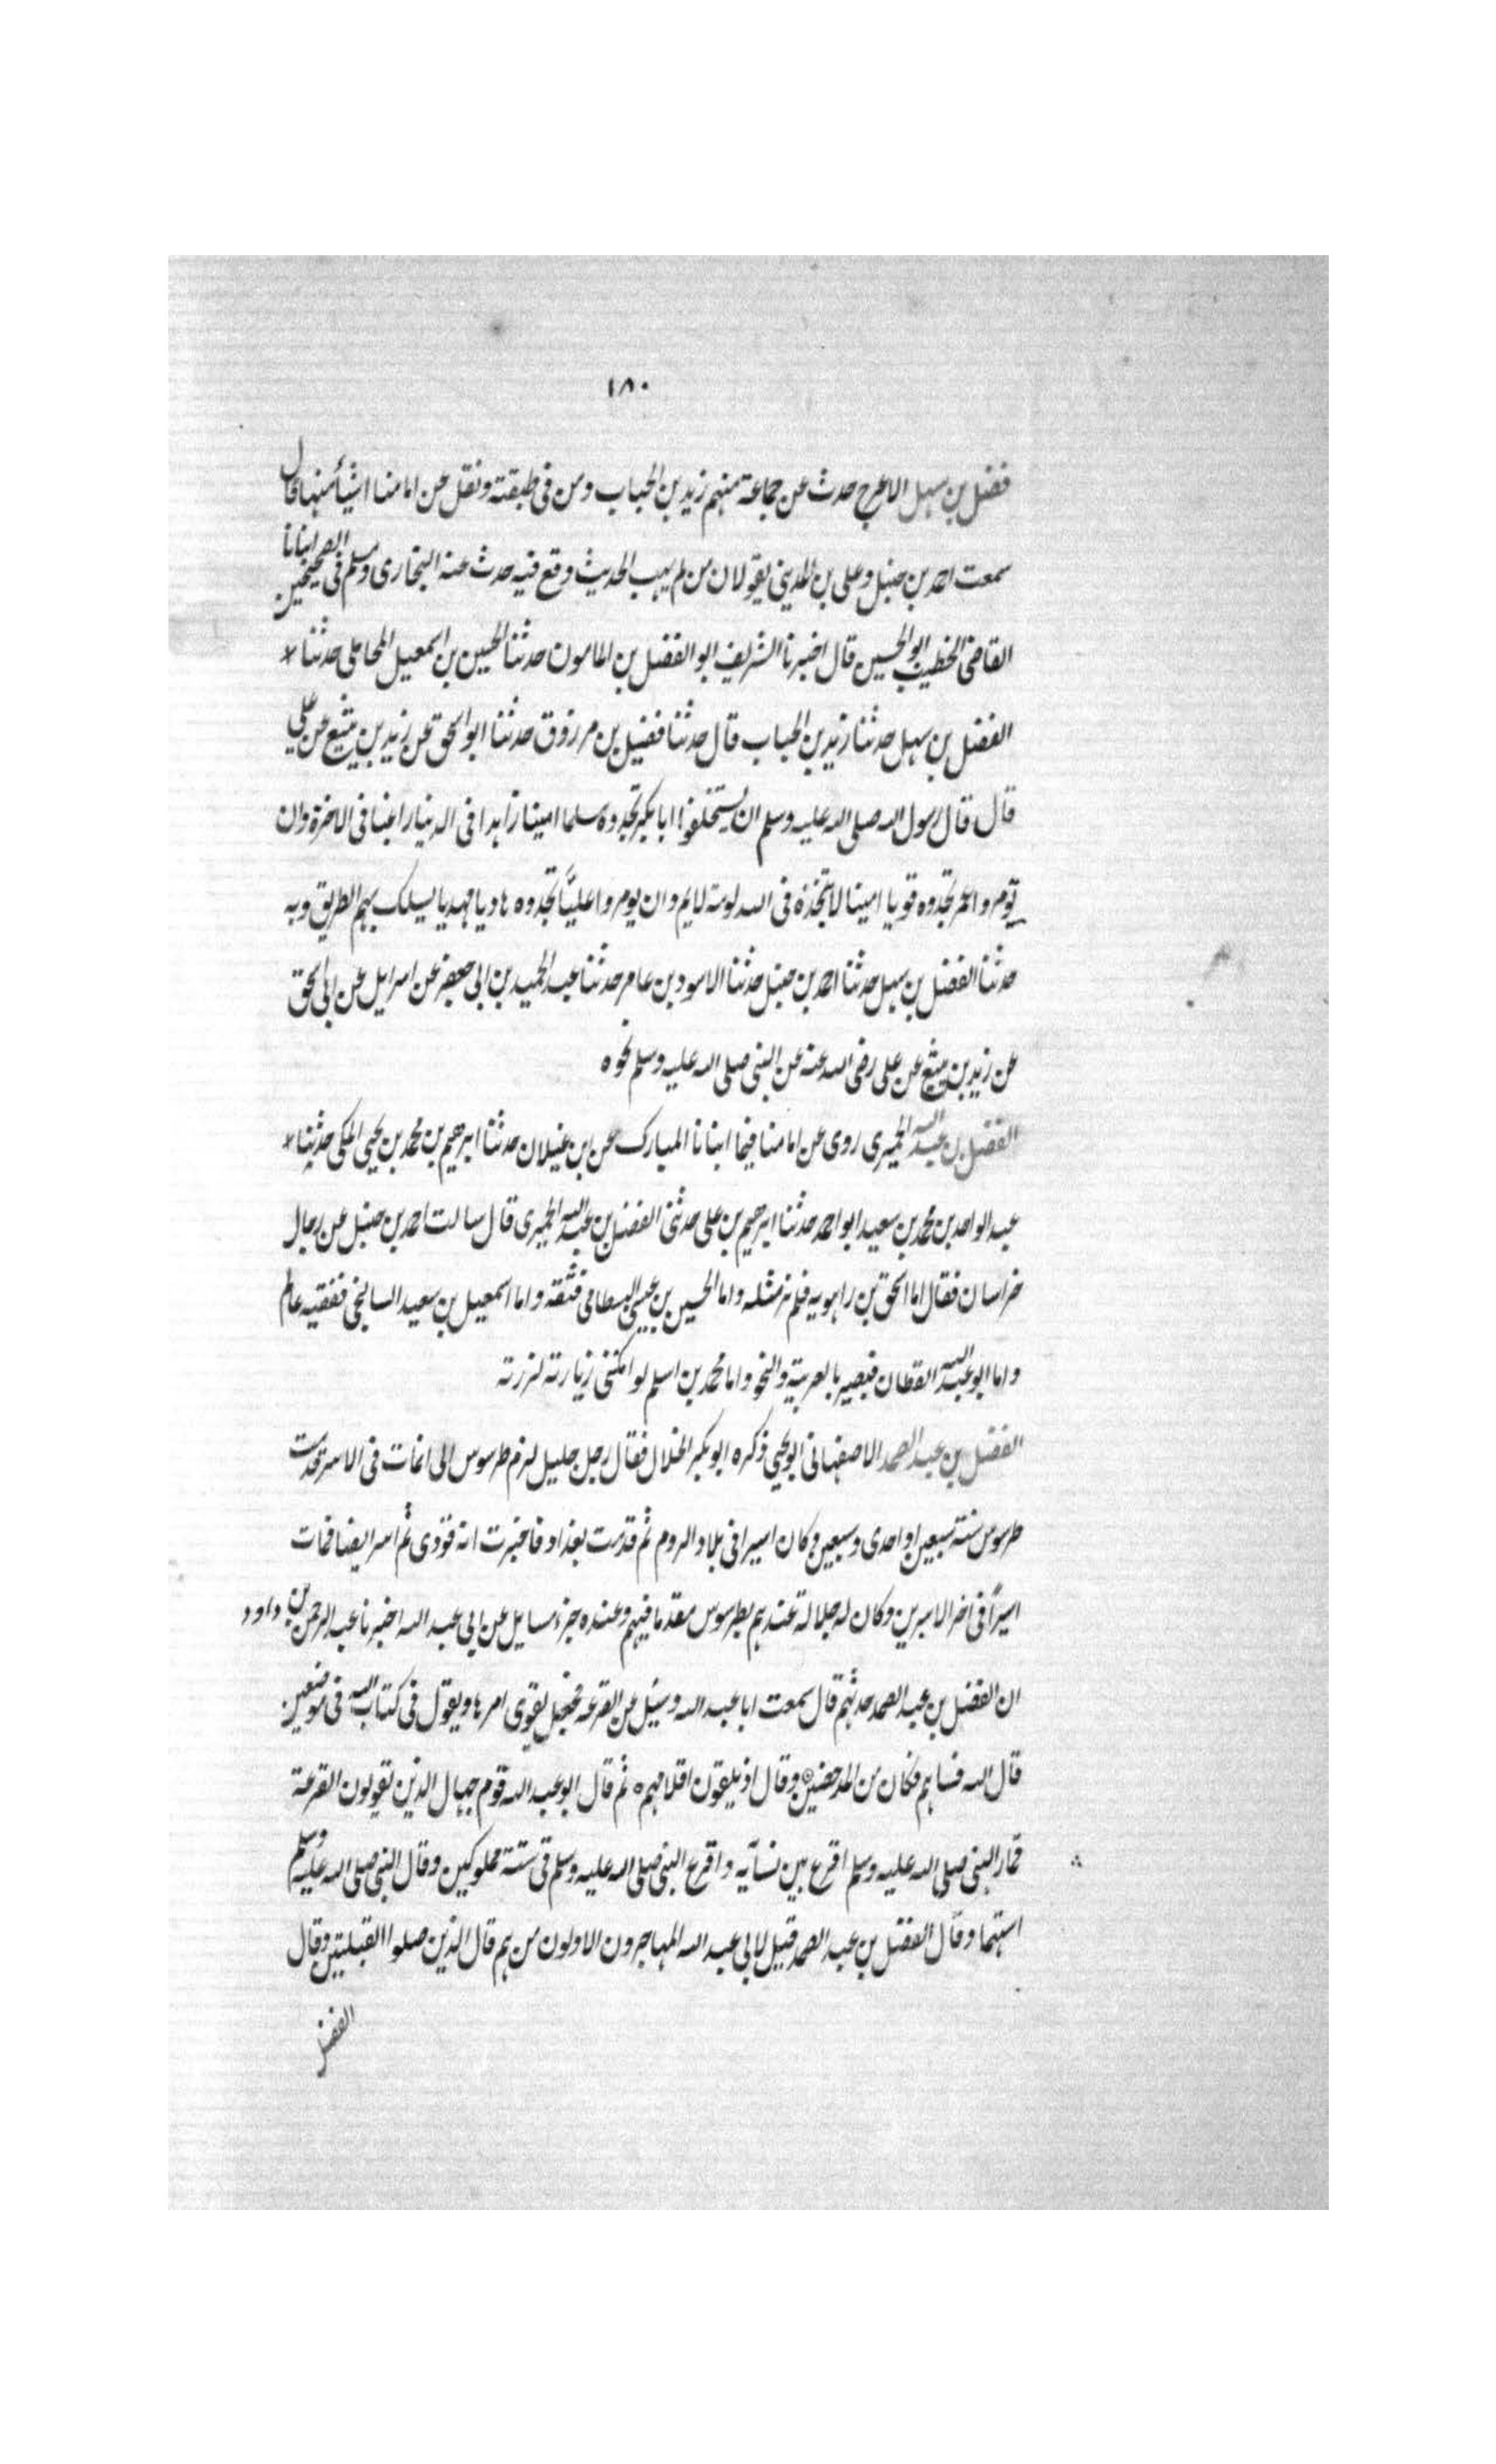 ١٨٠
فضل بن سهل الاعرج حدث عن جماعة منهم زيد بن الحباب ومن فى طبقته ونقل عن امامنا اشيأ منها قال
سمعت احمد بن حنبل وعلى بن المدينى يقولان من لم يهب الحديث وقع فيه حدث عنه البخارى ومسلم فى الصحيحين انبانا
القاضى الخطيب ابو الحسين قال اخبرنا الشريف ابو الفضل بن المامون حدثنا الحسين بن اسمعيل المحاملى حدثنا
الفضل بن سهل حدثنا زيد بن الحباب قال حدثنا فضيل بن مرزوق حدثنا ابو اسحق عن زيد بن يثيع عن على
قال قال رسول الله صلى الله عليه وسلم ان يستخلفوا ابا بكر تجدوه مسلما امينا زاهدا فى الدنيا راغبا فى الاخرة وان
تومروا عمر تجدوه قويا امينا لا تتخذه فى الله لومة لايم وان يومروا عليّا تجدوه هاديا مهديا يسلك بهم الطريق وبه
حدثنا الفضل بن سهل حدثنا احمد بن حنبل حدثنا الاسود بن عامر حدثنا عبد الحميد بن ابى جعفر عن اسرايل عن ابى اسحق
عن زيد بن يثيع عن على رضى الله عنه عن النبى صلى الله عليه وسلم نحوه
الفضل بن عبد الله الحميرى روى عن امامنا فيما انبانا المبارك عن ابن غيلان حدثنا ابرهيم بن محمد بن يحيى المكى حدثنا
عبد الواحد بن محمد بن سعيد ابو احمد حدثنا ابرهيم بن على حدثنى الفضل بن عبد الله الحميرى قال سالت احمد بن حنبل عن رجال
خراسان فقال اما اسحق بن راهويه فلم نر مثله واما الحسين بن عيسى البسطامى فثقة واما اسمعيل بن سعيد السالنجى ففقيه عالم
واما ابو عبد الله القطان فبصير بالعربية والنحو واما محمد بن اسلم لو امكننى زيارته لزرته
الفضل بن عبد الصمد الاصفهانى ابو يحيى ذكره ابو بكر الخلال فقال رجل جليل لزم طرسوس الى ان مات فى الاسر قدمت
طرسوس سنة سبعين او احدى وسبعين وكان اسيرا فى بلاد الروم ثم قدمت بغداد فاخبرت انه فودى ثم اسر ايضا فمات
اسيرًا فى اخر الاسيرين وكان له جلالة عندهم بطرسوس مقدما فيهم وعنده جزء مسايل عن ابى عبد الله اخبرنا عبد الرحمن بن داود
ان الفضل بن عبد الصمد حدثهم قال سمعت ابا عبد الله وسئل عن القرعة فجعل يقوى امرها ويقول فى كتاب الله فى موضعين
قال الله فساهم فكان من المدحضين وقال اذ يلقون اقلامهم ثم قال ابو عبد الله قوم جهال الذين يقولون القرعة
قمار النبى صلى الله عليه وسلم اقرع بين نسآيه واقرع النبى صلى الله عليه وسلم فى ستة مملوكين وقال النبى صلى الله عليه وسلم
استهما وقال الفضل بن عبد الصمد قيل لابى عبد الله المهاجرون الاولون من هم قال الذين صلوا القبلتين وقال
الفضل